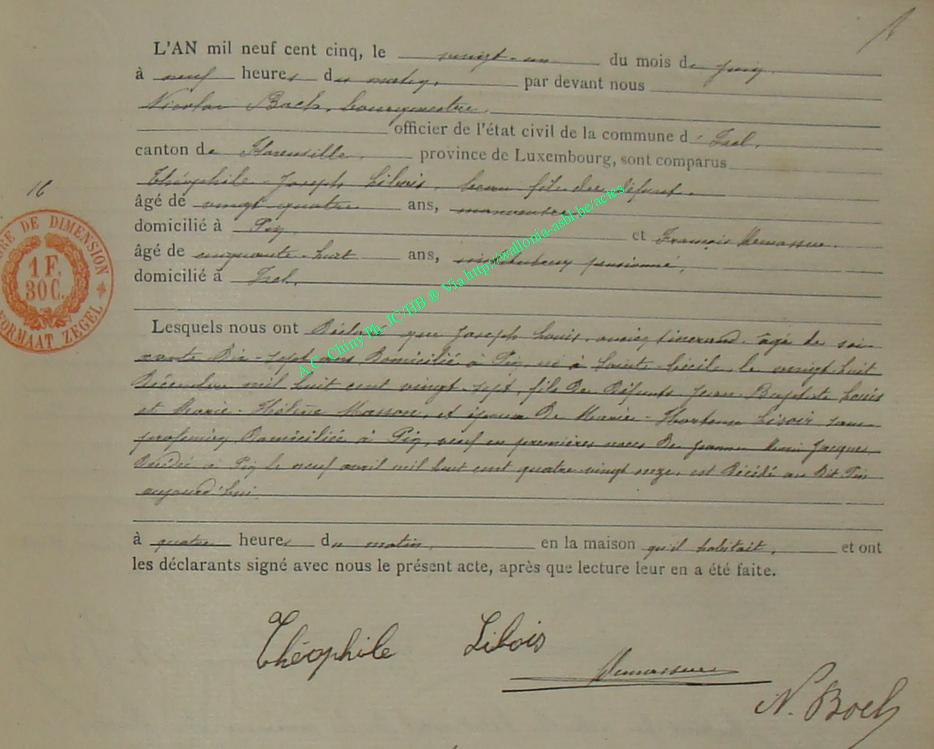 L'AN mil neuf cent cinq, le vingt-un du mois de juin
à neuf heures du matin, par devant nous
Nicolas Boch, bourgmestre,
officier de l'état civil de la commune d'Izel,
canton de Florenville, province de Luxembourg, sont comparus
Théophile-Joseph Libois, beau-fils du défunt,
16
âgé de vingt-quatre ans, manoeuvre
domicilié à Pin et François
âgé de cinquante-huit ans, pensionné,
domicilié à Izel,
Lesquels nous ont déclaré que Joseph Louis, ancien tisserand, âgé de soi-
xante dix-sept ans, domicilié à Pin, né à Sainte-Cécile, le vingt huit
Décembre mil huit cent vingt-sept, fils de défunts Jean-Baptiste Louis
et Marie-Hélène Masson, et époux de Marie-Hortense sans
profession, domiciliée à Pin, veuf en premières noces de Jeanne Jacques,
décédée à Pin le neuf avril mil huit cent quatre-vingt onze, est décédé au dit Pin
aujourd'hui
à quatre heures du matin, en la maison qu'il habitait, et ont
les déclarants signé avec nous le présent acte, après que lecture leur en a été faite.
Théophile Libois
N. Boch
TIMBRE DE DIMENSION
1 F.
30C.
FORMAAT ZEGEL
A.C. Chiny Ph. JC/HB ® Via http://wallonia-asbl.be/actes